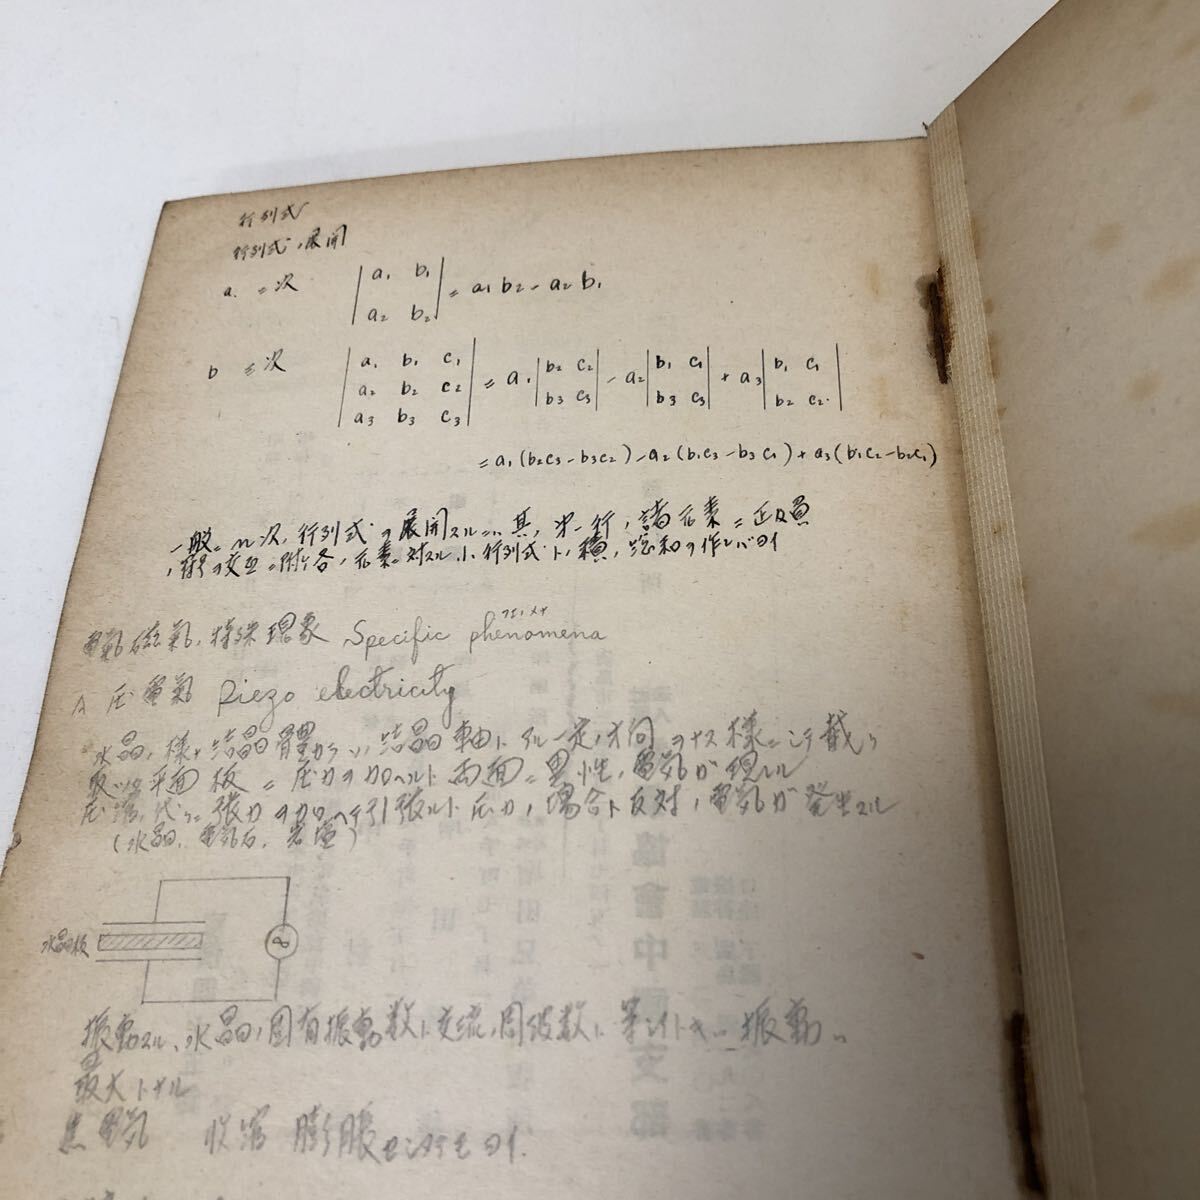 行列式
行列式ノ展開
a. 二次 | a₁ b₁ | = a₁ b₂ - a₂ b₁
| a₂ b₂ |
b 三次 | a₁ b₁ c₁ |
| a₂ b₂ c₂ | = a₁ | b₂ c₂ | - a₂ | b₁ c₁ | + a₃ | b₁ c₁ |
| a₃ b₃ c₃ | | b₃ c₃ | | b₃ c₃ | | b₂ c₂ |
= a₁ (b₂c₃ - b₃c₂) - a₂ (b₁c₃ - b₃c₁) + a₃ (b₁c₂ - b₂c₁)
一般ニ n次ノ行列式ヲ展開スルニハ其ノ第一行ノ諸元素ニ正負
ノ符号ヲ交互ニ附シ各元素ニ対スル小行列式トノ積ノ総和ヲ作レバヨイ
電氣磁氣ノ特殊現象 Specific phenomena
A 圧電氣 Piezo electricity
水晶ノ様ナ結晶體カラ結晶軸ト一定ノ方向ヲナス様ニシテ截リ
取ツタ平面板ニ圧力ヲ加ヘルト両面ニ異性ノ電気ガ現レル
圧縮ノ代リニ張力ヲ加ヘテ引張ルト圧力ノ場合ト反対ノ電気ガ発生スル
(水晶、電気石、岩塩)
水晶板
∞
振動スル、水晶ノ固有振動数ト交流ノ周波数ト等シイトキハ振動ハ
最大トナル
焦電気 収縮 膨脹センデモヨイ.